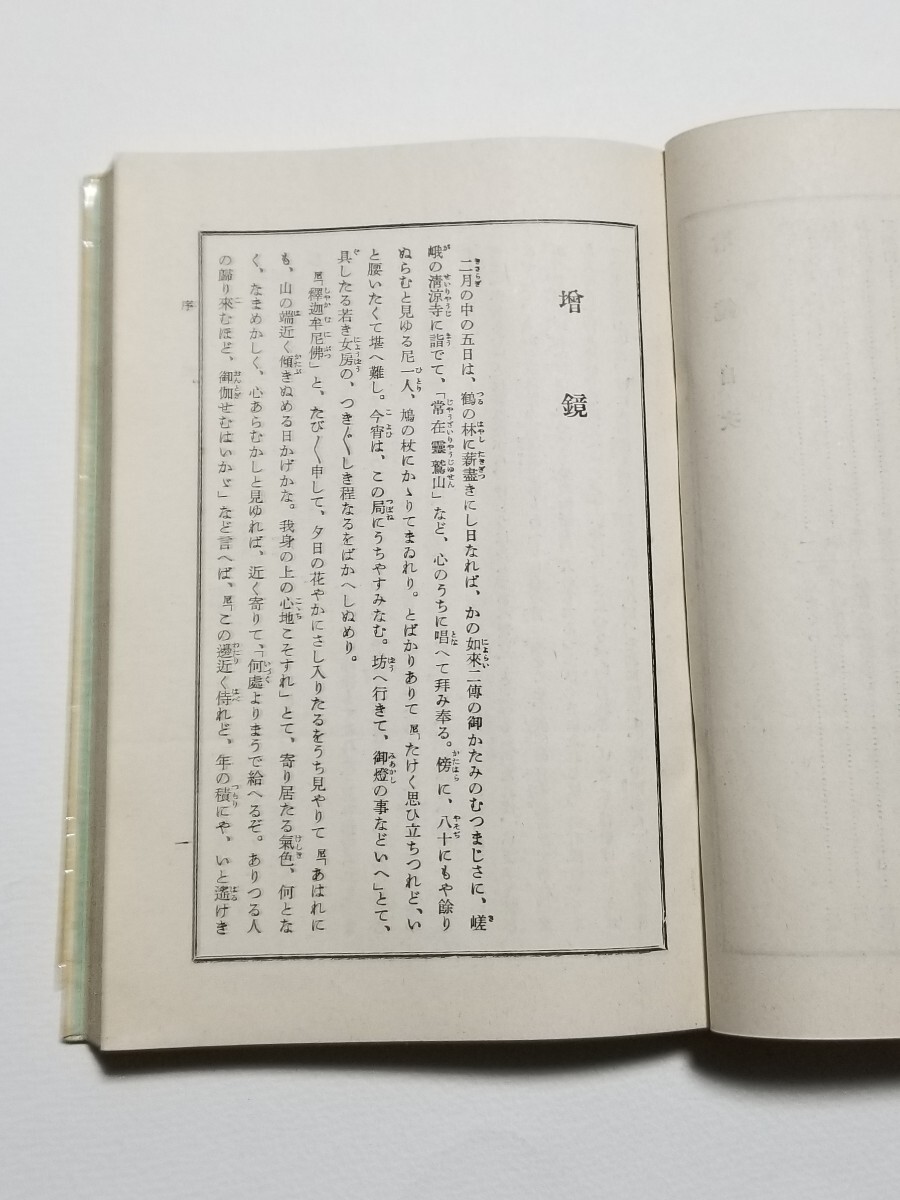 增鏡
二月の中の五日は、鶴の林に薪盡きにし日なれば、かの如來二傳の御かたみのむつまじさに、嵯
峨の淸涼寺に詣でて、「常在靈鷲山」など、心のうちに唱へて拜み奉る。傍に、八十にもや餘り
ぬらむと見ゆる尼一人、鳩の杖にかゝりてまゐれり。とばかりありて尼「たけく思ひ立ちつれど、い
と腰いたくて堪へ難し。今宵は、この局にうちやすみなむ。坊へ行きて、御燈の事などいへ」とて、
具したる若き女房の、つき〴〵しき程なるをばかへしぬめり。
尼「釋迦牟尼佛」と、たび〳〵申して、夕日の花やかにさし入りたるをうち見やりて尼「あはれに
も、山の端近く傾きぬめる日かげかな。我身の上の心地こそすれ」とて、寄り居たる氣色、何とな
く、なまめかしく、心あらむかしと見ゆれば、近く寄りて、「何處よりまうで給へるぞ。ありつる人
の歸り來むほど、御伽せむはいかゞ」など言へば、尼「この邊近く侍れど、年の積にや、いと遙けき
序
一